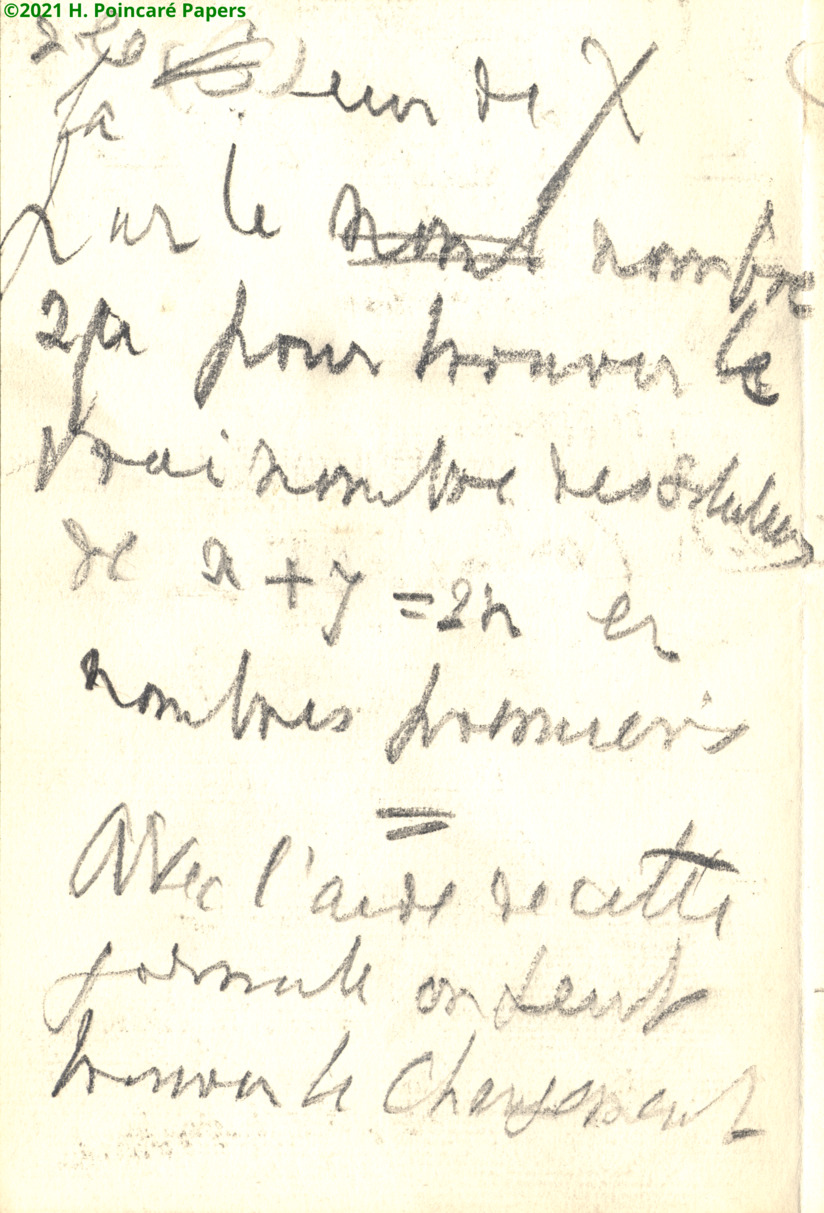 ©2021 H. Poincaré Papers
leur de X
la
sur le nomb nombre
2μ pour trouver le
vrai nombre des solutions
de x + y = 2n en
nombres premiers
=
Avec l'aide de cette
formule on peut
trouver le changement